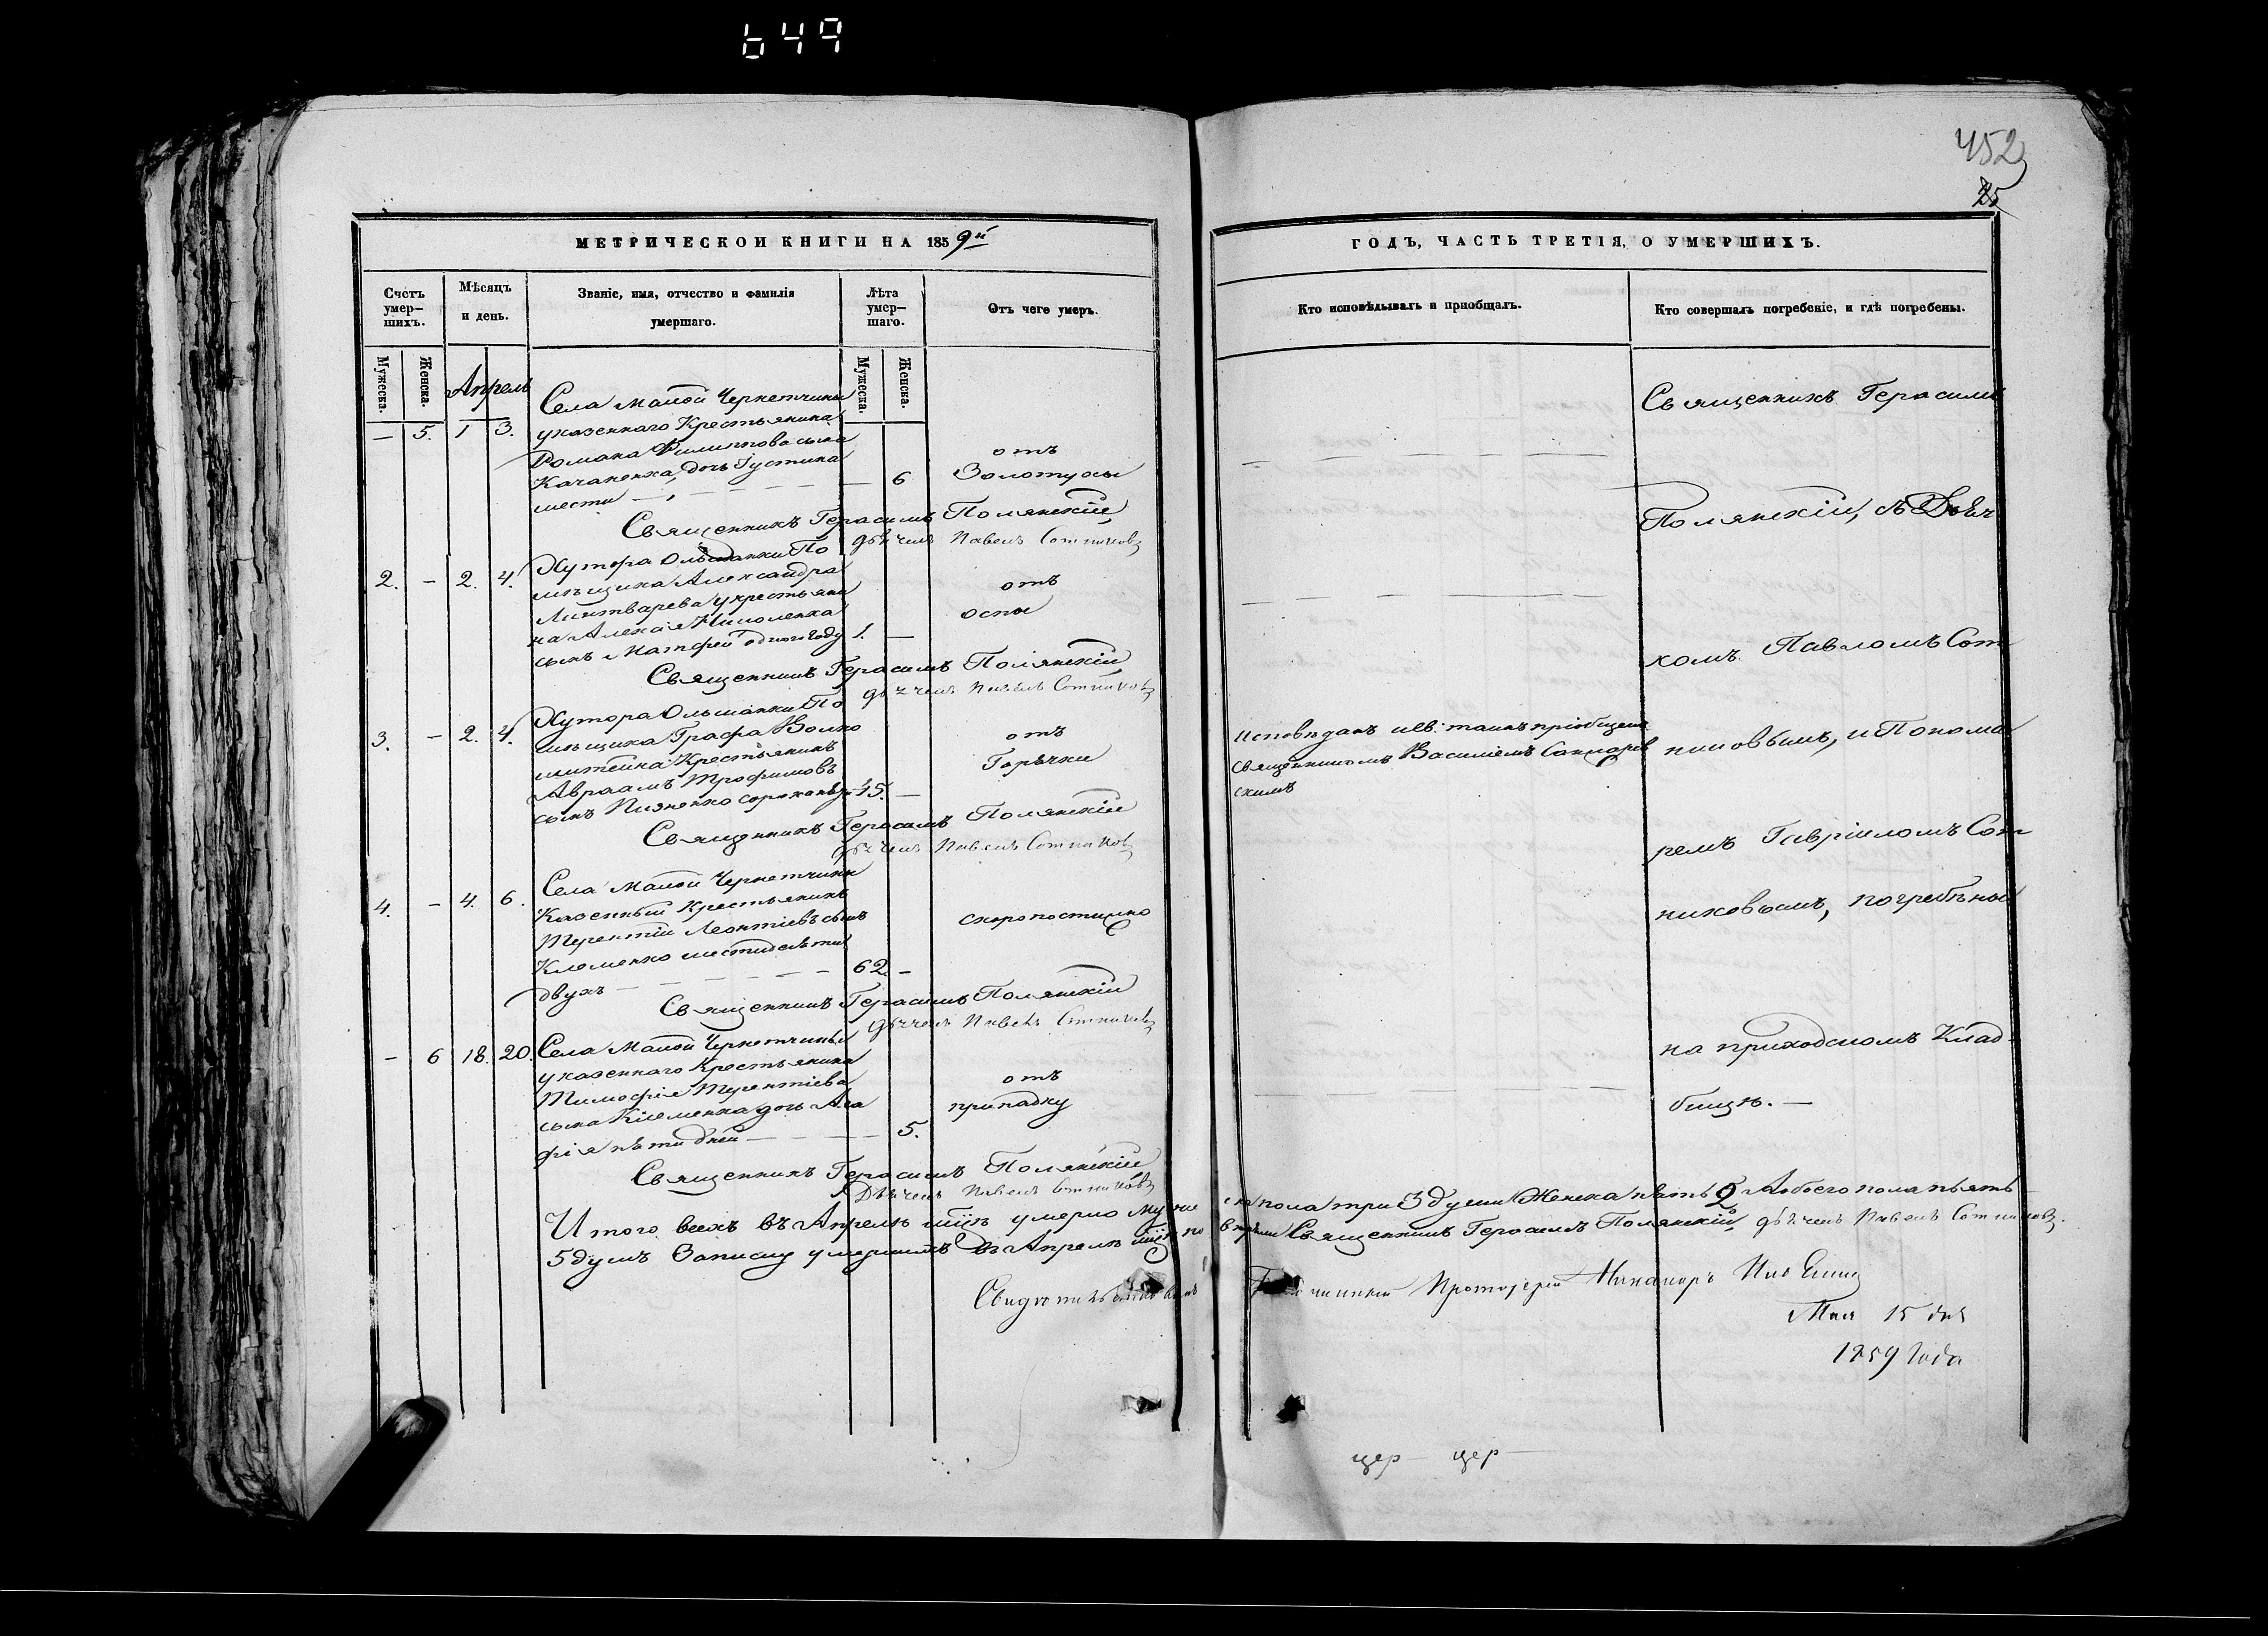 649
452
25
МЕТРИЧЕСКОЙ КНИГИ НА 1859й
Счетъ умер-шихъ.
Мѣсяцъ и день.
Званіе, имя, отчество и фамилія умершаго.
Лѣта умер-шаго.
Отъ чего умеръ.
Мужеска. Женска.
Мужеска. Женска.
Апрель
— 5. 1 3.
Села Малой Чернетчины
у казеннаго Крестьянина
Романа Филиппова сына
Качаненка, дочь Густина
шести — — 6
отъ
Золотухи
Священникъ Герасимъ Полянскій
дьячекъ Павелъ Сотниковъ
2. — 2. 4.
Хутора Ольшанки По
мѣщика Александра
Линтварева у крестьяни
на Алексія Николенка
сынъ Матфей одного году 1. —
отъ
оспы
Священникъ Герасимъ Полянскій
дьячекъ Павелъ Сотниковъ
3. — 2. 4.
Хутора Ольшанки По
мѣщика Графа Волко
Крестьянинъ
Авраамъ Трофимовъ
сынъ 45. —
отъ
Горячки
Священникъ Герасимъ Полянскій
дьячекъ Павелъ Сотниковъ
4. — 4. 6.
Села Малой Чернетчины
Казенный Крестьянинъ
Терентій Леонтіевъ сынъ
Клеменко шестидесяти
двухъ — 62. —
скоропостижно
Священникъ Герасимъ Полянскій
дьячекъ Павелъ Сотниковъ
— 6 18. 20.
Села Малой Чернетчины
у казеннаго Крестьянина
Тимофія Терентіева
сына Клеменка дочь Ага
фія пяти дней — 5.
отъ
припадку
Священникъ Герасимъ Полянскій
Дьячекъ Павелъ Сотниковъ
Итого всехъ въ Апрелѣ мцѣ умерло муже
5 душъ Записку умершихъ въ Апрелѣ мцѣ по
ГОДЪ, ЧАСТЬ ТРЕТІЯ, О УМЕРШИХЪ.
Кто исповѣдывалъ и пріобщалъ.
Кто совершалъ погребеніе, и гдѣ погребены.
Исповѣданъ и св: таинъ пріобщенъ
священникомъ Василіемъ
Священникъ Герасимъ
Полянскій, съ Дьяч
комъ Павломъ Сот
никовымъ, и Понома
ремъ Гавріиломъ Сот
никовымъ, погребены
на приходскомъ Клад
бищѣ. —
ска пола три 3 души Женска пола 2 А обоего пола пять
вѣряли Священникъ Герасимъ Полянскій дьячекъ Павелъ Сотниковъ.
Протоіерей
Мая 15 дня
1859 года
цер — цер —